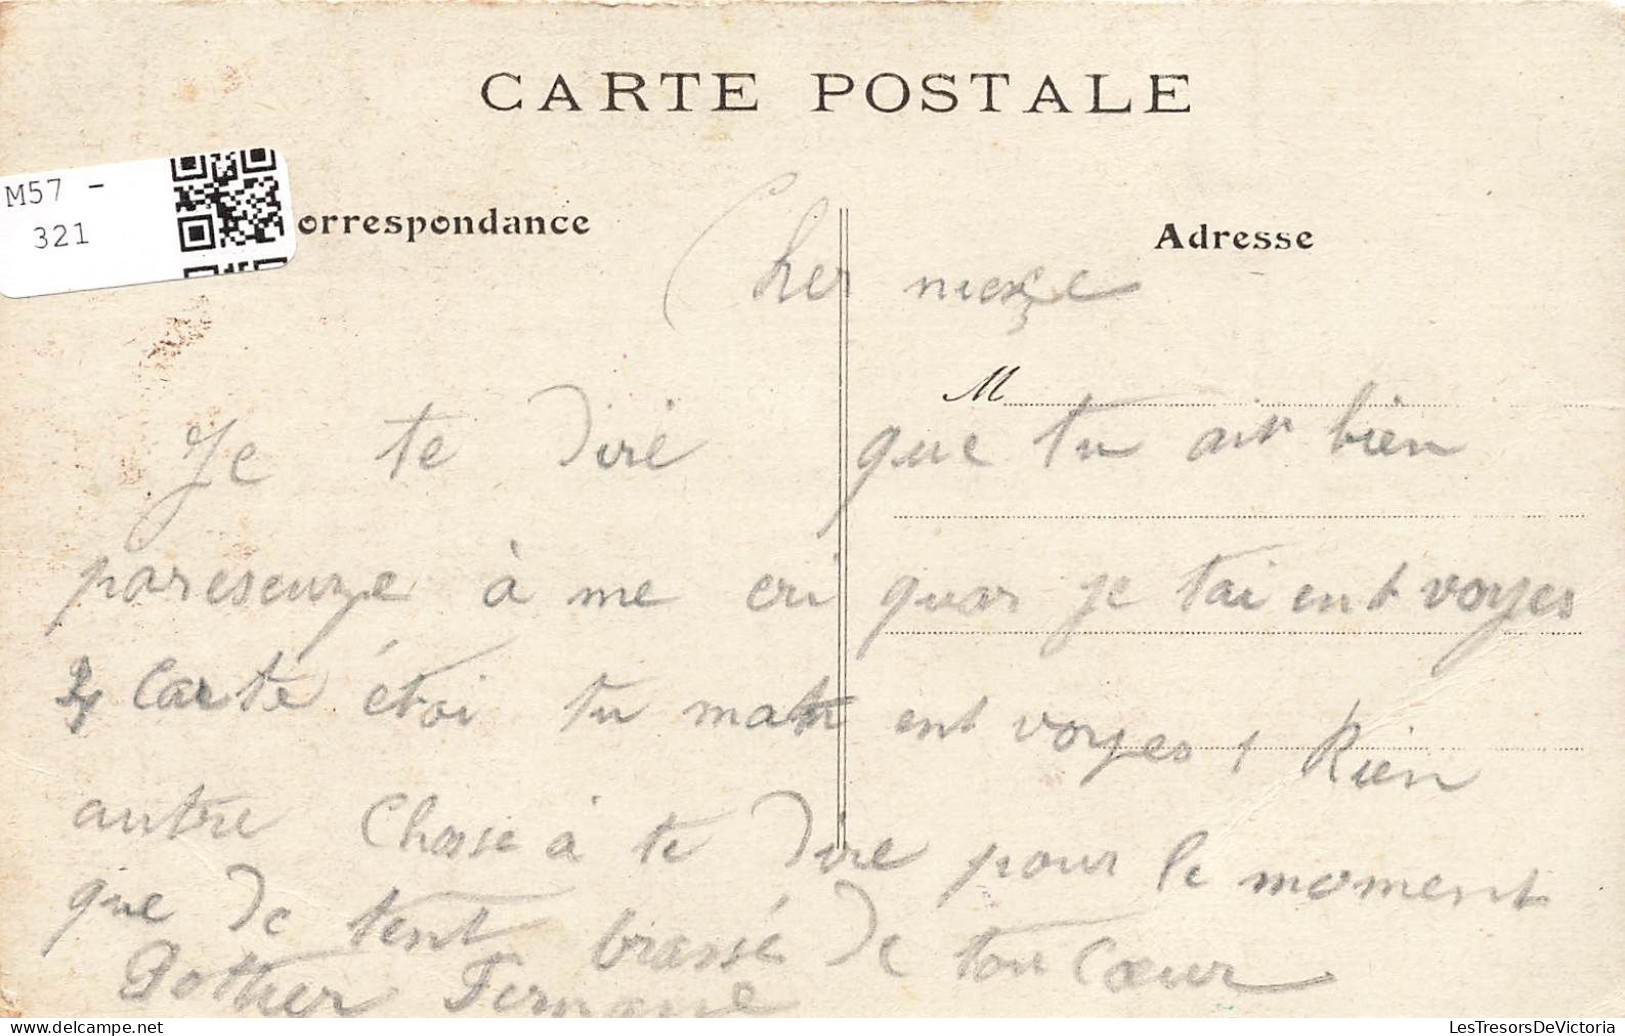 CARTE POSTALE
M57 -
321
orrespondance
Adresse
Cher
M
Je te dire que tu ait bien
pareseuze à me cri quar je tai ent voyes
4 Carte étoi tu ma ent voyes 1 Rien
autre Chose à te dire pour le moment
que de tent brassé de tou Cœur
Pothier
LesTresorsDeVictoria.com